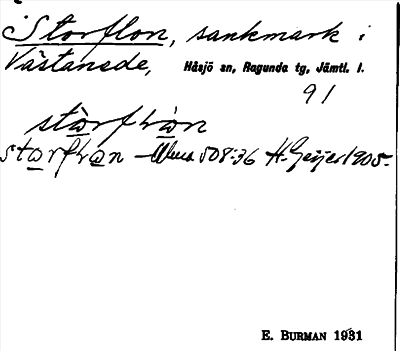 Storflon, sankmark i
Västanede, Håsjö sn, Ragunda tg, Jämtl. l.
91
stòrfḷo̱n
sto̱rfḷo̱n – 508:36 H. Geijer 1905.
E. BURMAN 1931